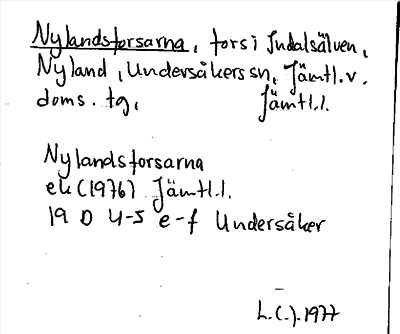 Nylandsforsarna, fors i Indalsälven,
Nyland, Undersåkers sn, Jämtl. v.
doms. tg, Jämtl. l.
Nylandsforsarna
ek (1976) Jämtl. l.
19 D 4-5 e-f Undersåker
L.(.).1977